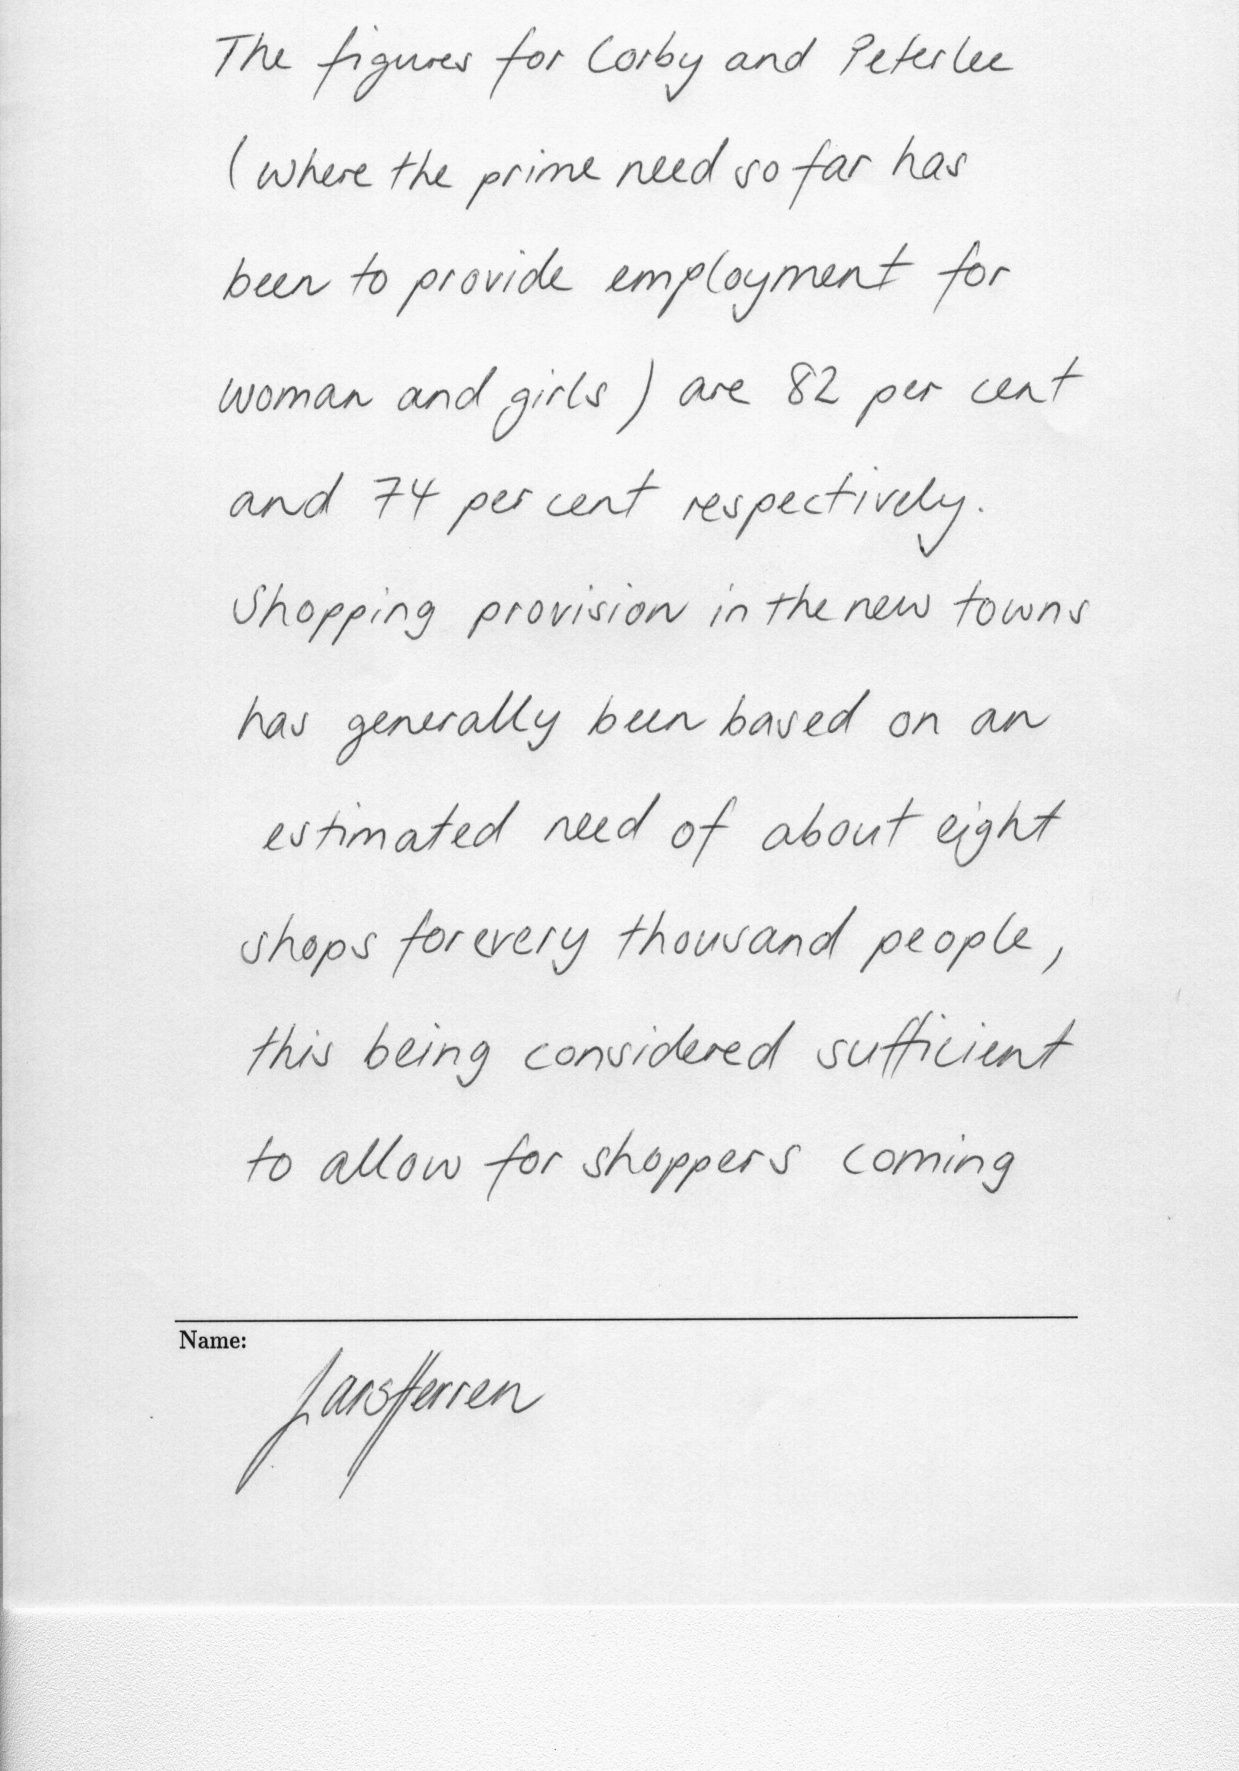 The figures for Corby and Peterlee
(where the prime need so far has
been to provide employment for
woman and girls) are 82 per cent
and 74 per cent respectively.
Shopping provision in the new towns
has generally been based on an
estimated need of about eight
shops for every thousand people,
this being considered sufficient
to allow for shoppers coming
Name:
Lars Herren